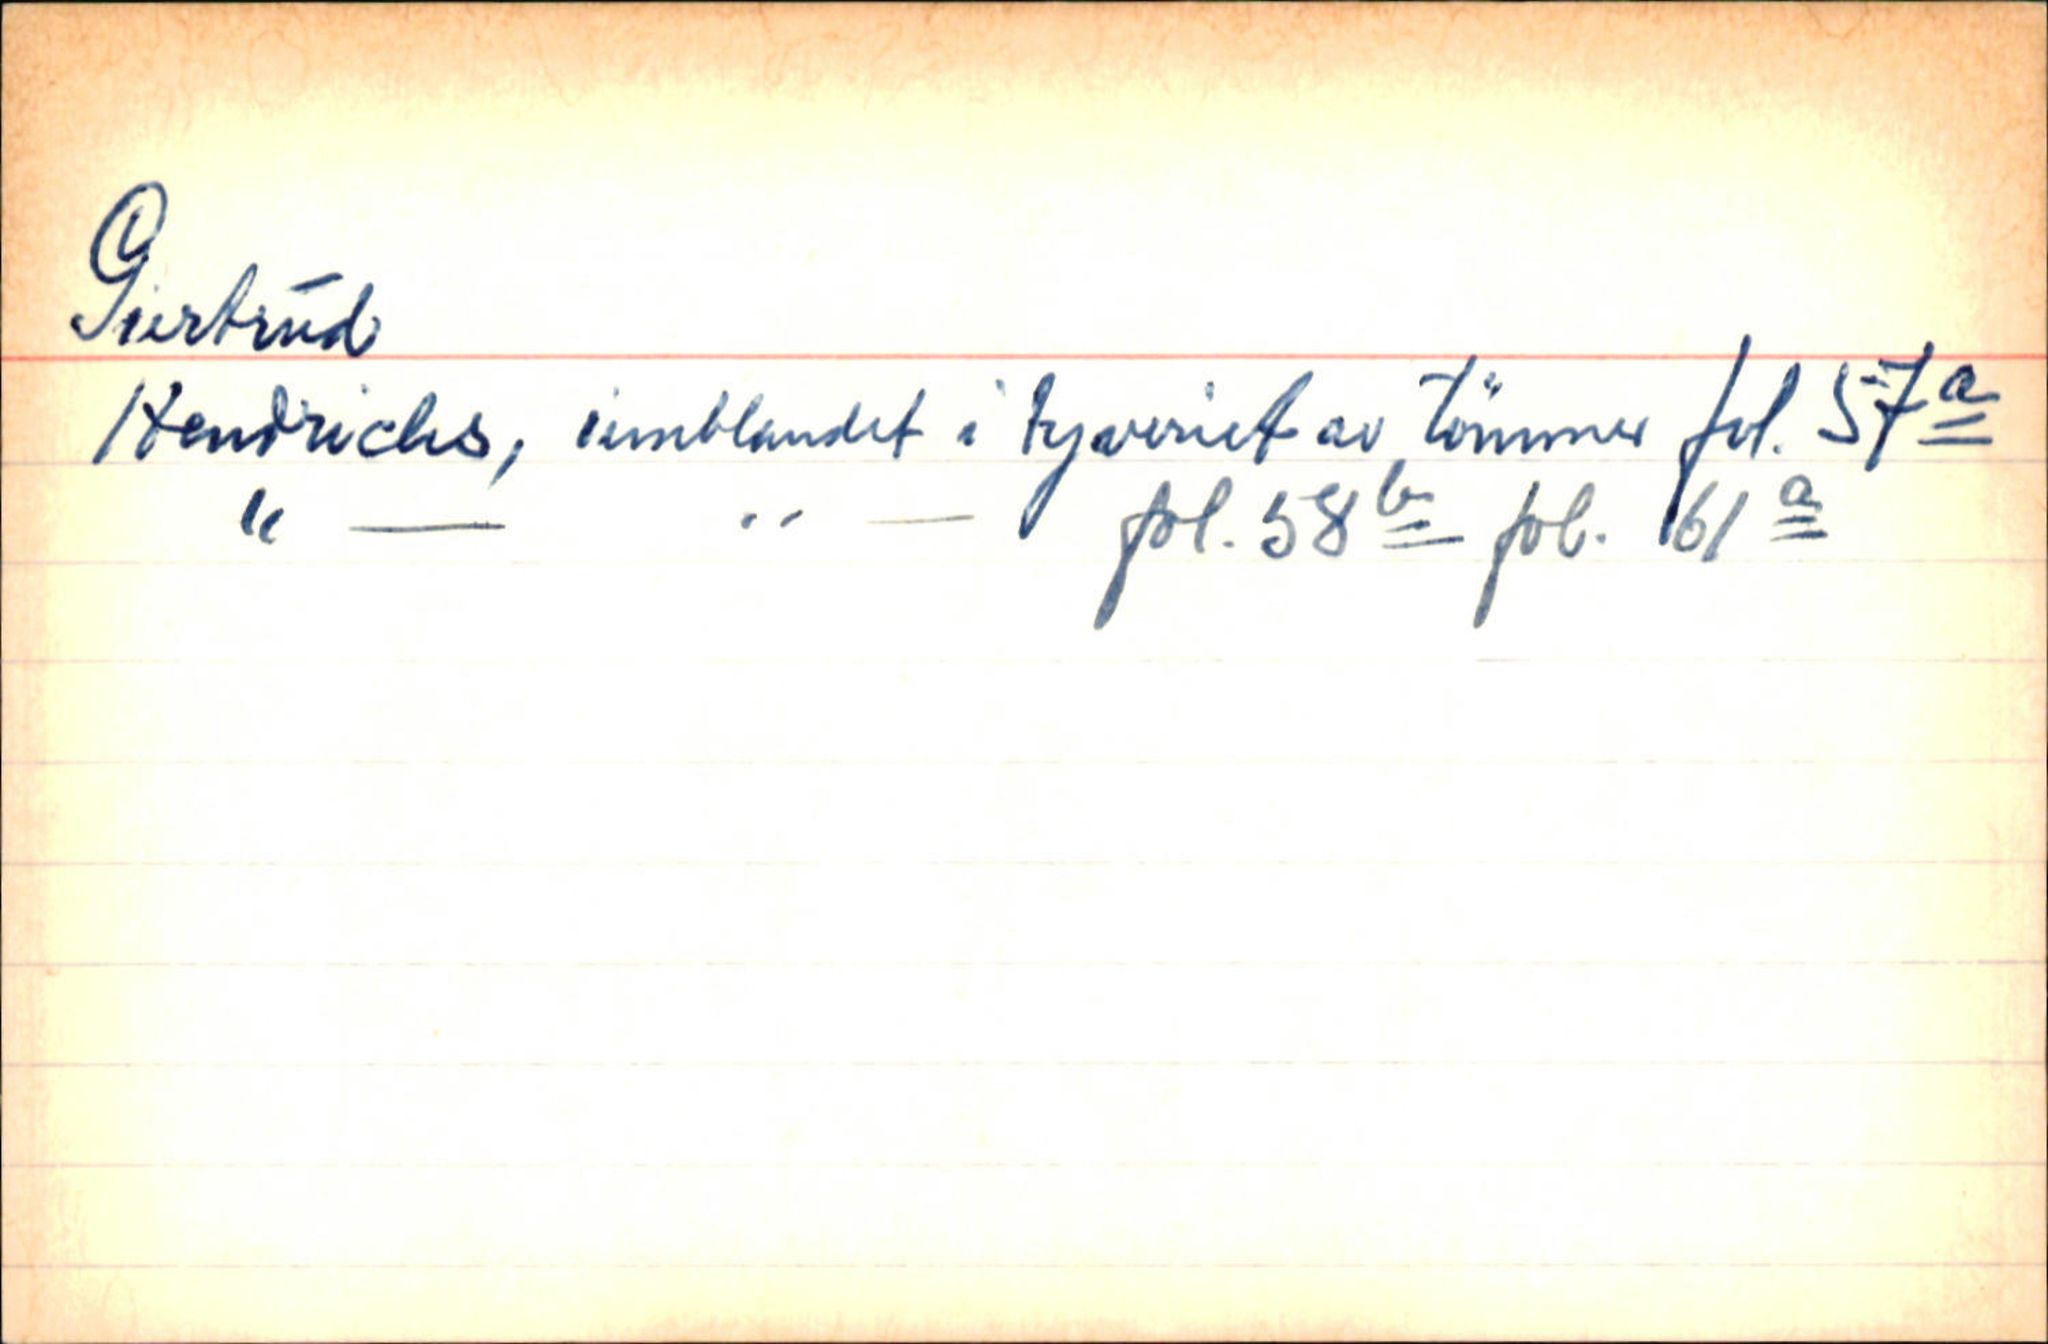 Giertrud
Hendrichs, innblandet i tyveriet av tömmer fol. 57a
" — " — fol. 58b fol. 61a